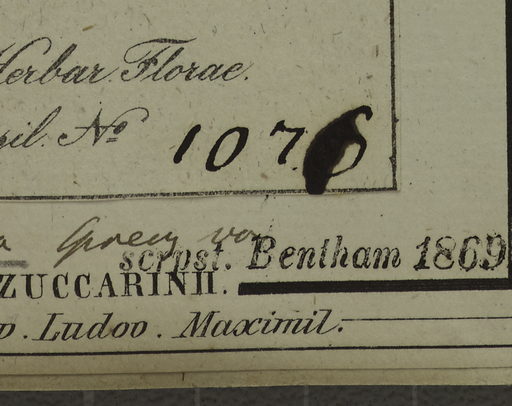 Herbar. Florae.
sil. No 1076
scrpst. Bentham 1869
ZUCCARINII.
p. Ludov. Maximil.